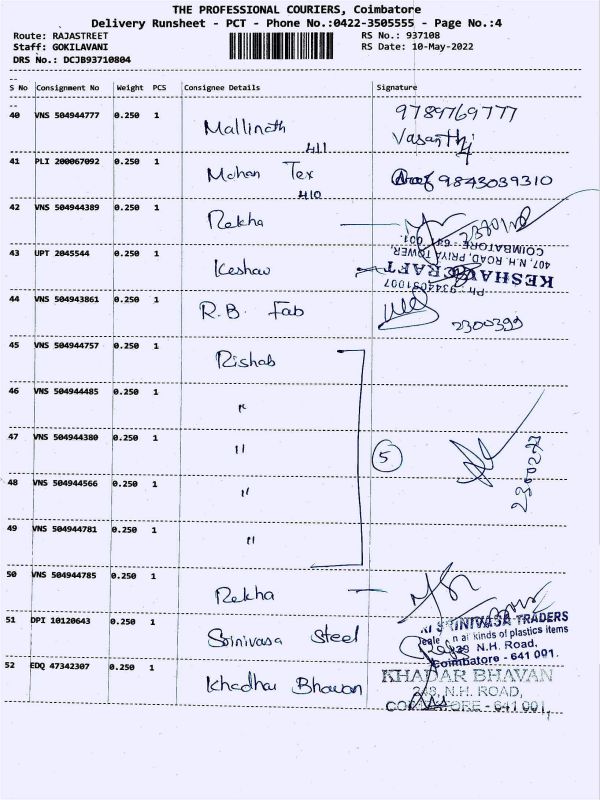 THE PROFESSIONAL COURIERS, Coimbatore
Delivery Runsheet - PCT - Phone No.:0422-3505555 - Page No.:4
Route: RAJASTREET RS No.: 937108
Staff: GOKILAVANI RS Date: 10-May-2022
DRS No.: DCJB93710804
S No Consignment No Weight PCS Consignee Details Signature
40 VNS 504944777 0.250 1 Mallinath 9789769777
411 Vasanthi
41 PLI 200067092 0.250 1 Mohan Tex 9843039310
410
42 VNS 504944389 0.250 1 Rekha
43 UPT 2045544 0.250 1 Keshav
KESHAV CRAFT
407, N.H. ROAD, PRIYA TOWER,
COIMBATORE - 641 001.
44 VNS 504943861 0.250 1 R.B. Fab
2300399
45 VNS 504944757 0.250 1 Rishab
46 VNS 504944485 0.250 1 "
47 VNS 504944380 0.250 1 " 5
48 VNS 504944566 0.250 1 "
49 VNS 504944781 0.250 1 "
50 VNS 504944785 0.250 1 Rekha
51 DPI 10120643 0.250 1 Srinivasa Steel
SRINIVASA TRADERS
kinds of plastics items
N.H. Road,
Coimbatore - 641 001.
52 EDQ 47342307 0.250 1 Khadhar Bhavan
KHADAR BHAVAN
N.H. ROAD,
COIMBATORE - 641 001,